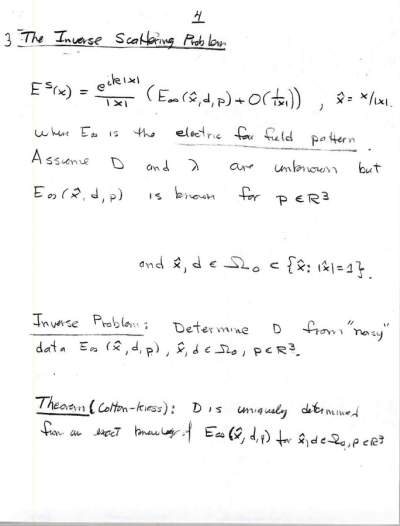 4
3 The Inverse Scattering Problem
E^s(x) = e^{ik|x|}/|x| (E∞(x̂,d,p) + O(1/|x|)) , x̂ = x/|x|.
where E∞ is the electric far field pattern.
Assume D and λ are unknown but
E∞(x̂,d,p) is known for p ∈ R³
and x̂, d ∈ Ω₀ ⊂ {x̂: |x̂|=1}.
Inverse Problem: Determine D from "noisy"
data E∞(x̂,d,p), x̂,d ∈ Ω₀, p ∈ R³.
Theorem (Colton-Kress): D is uniquely determined
from an exact knowledge of E∞(x̂,d,p) for x̂,d ∈ Ω₀, p ∈ R³